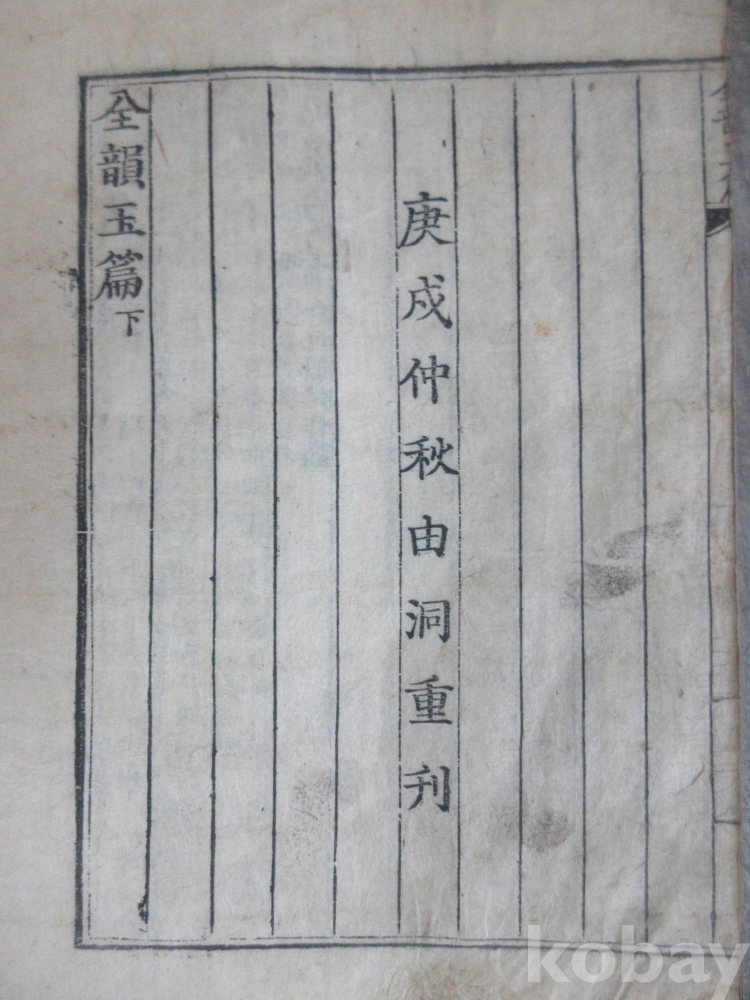 庚戌仲秋由洞重刊
全韻玉篇下
kobay